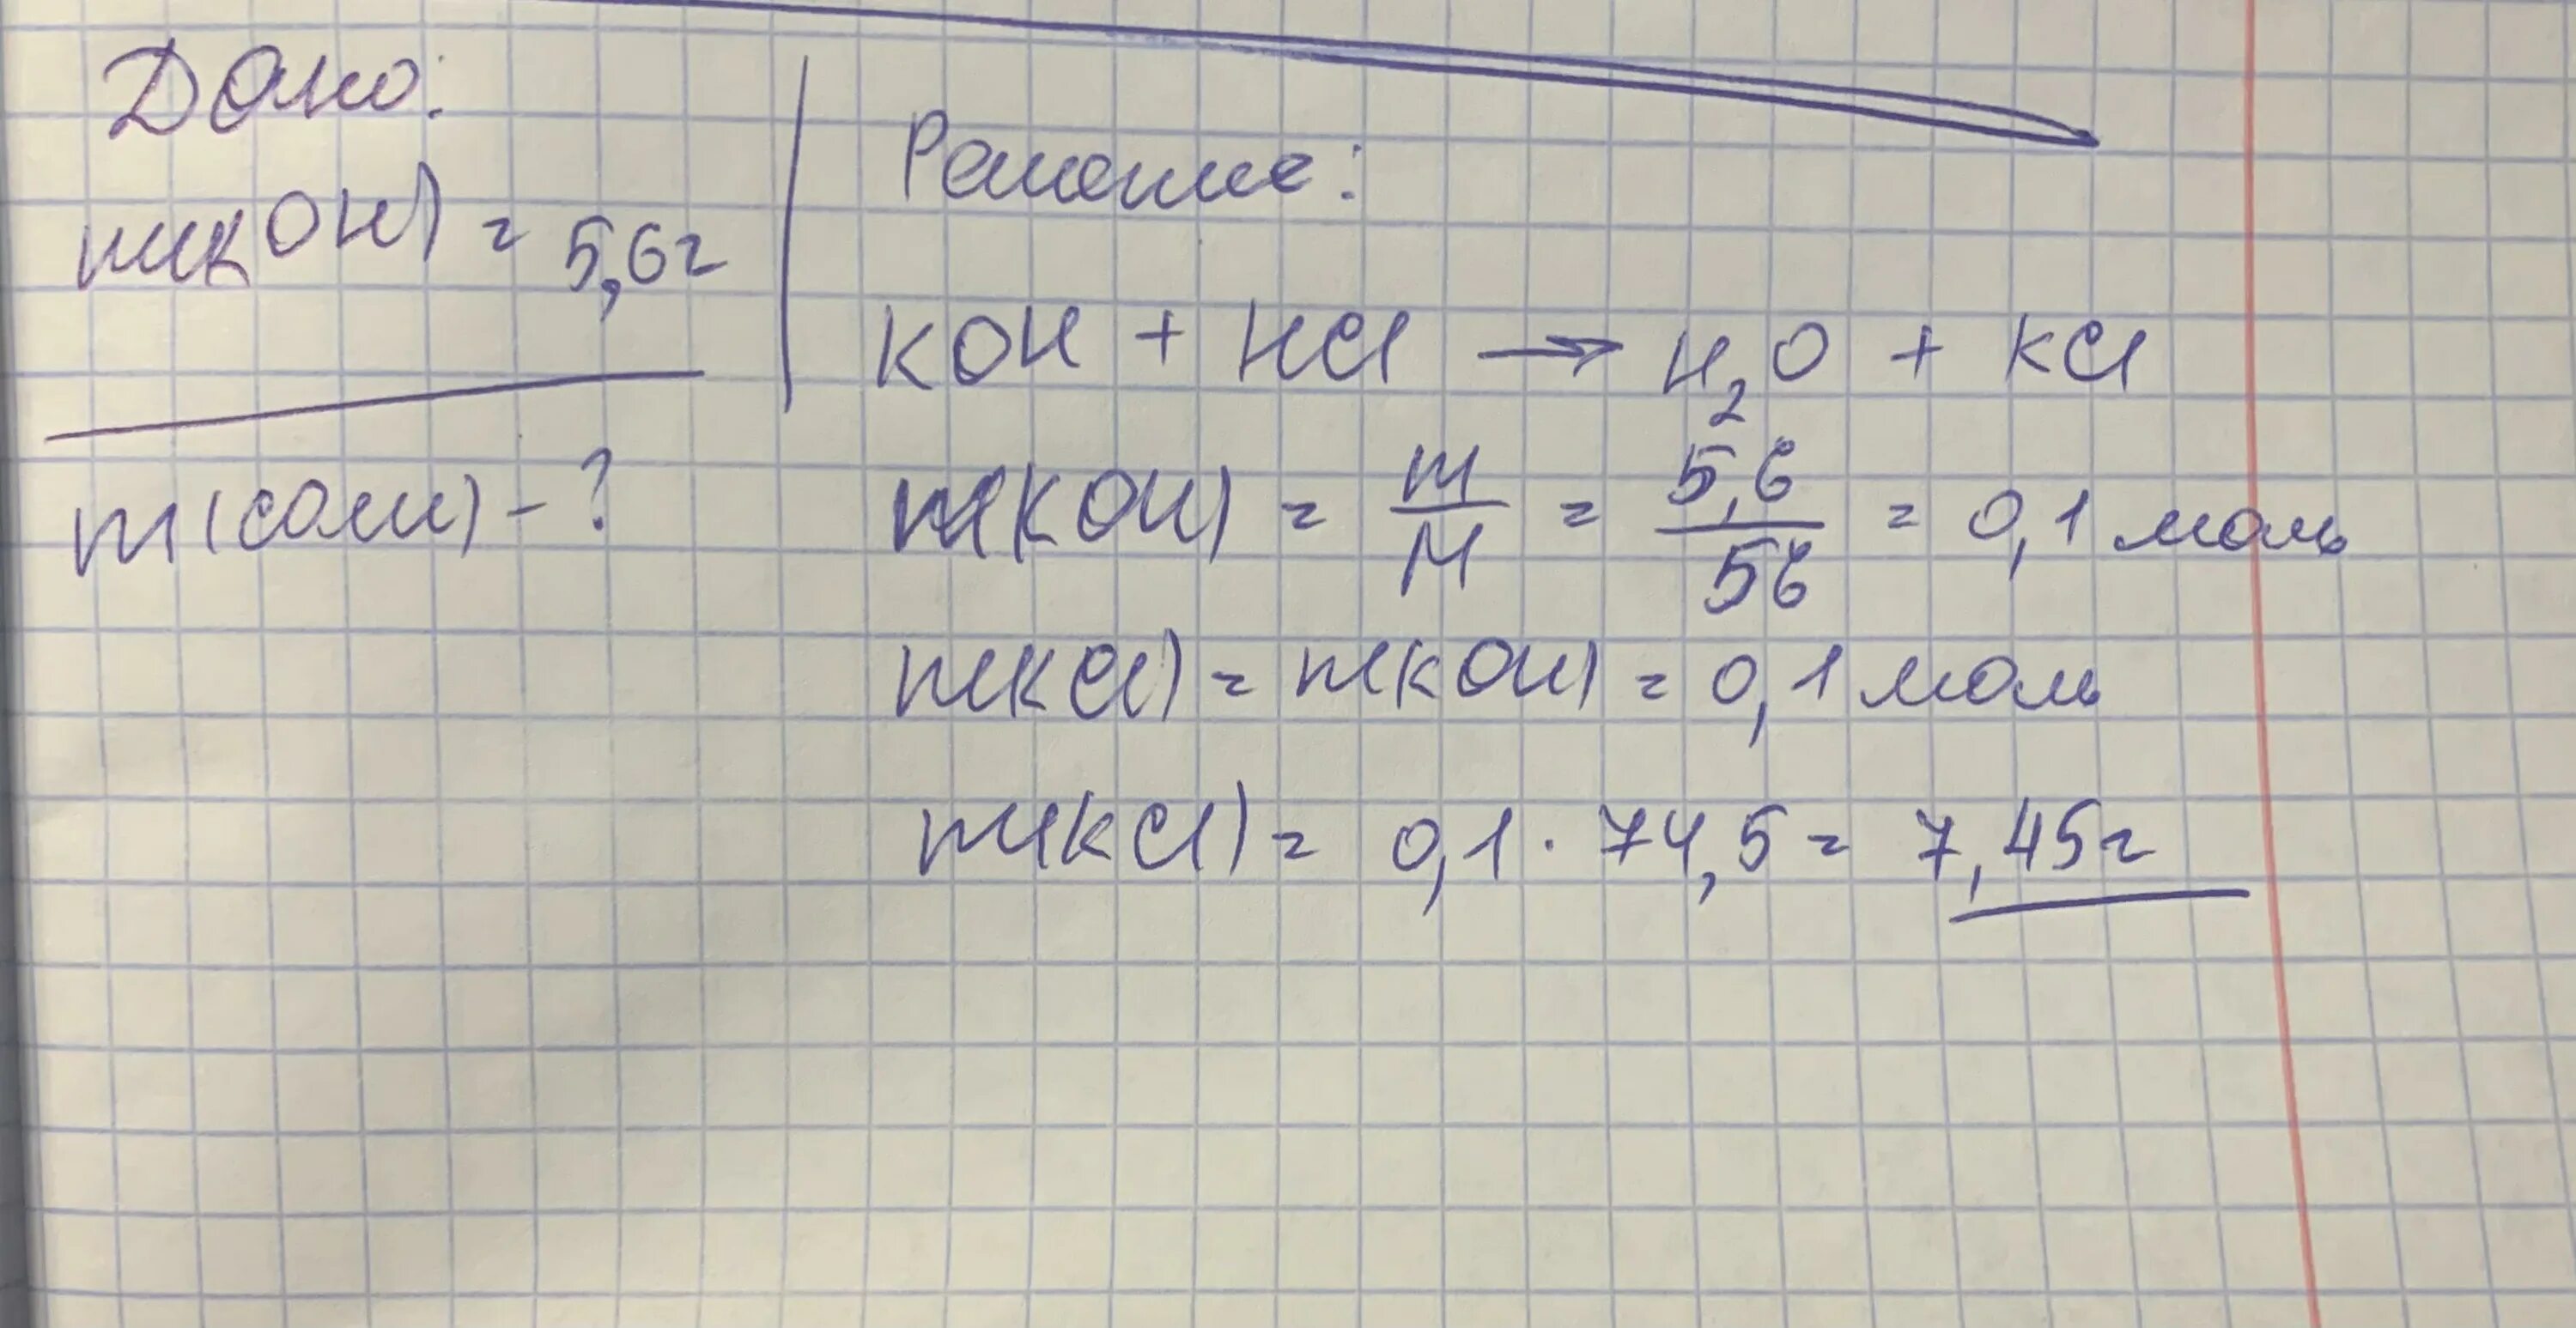 Дано:
m(KOH) = 5,6г
m(соли) - ?
Решение:
KOH + HCl → H₂O + KCl
n(KOH) = m/M = 5,6/56 = 0,1 моль
n(KCl) = n(KOH) = 0,1 моль
m(KCl) = 0,1 · 74,5 = 7,45г